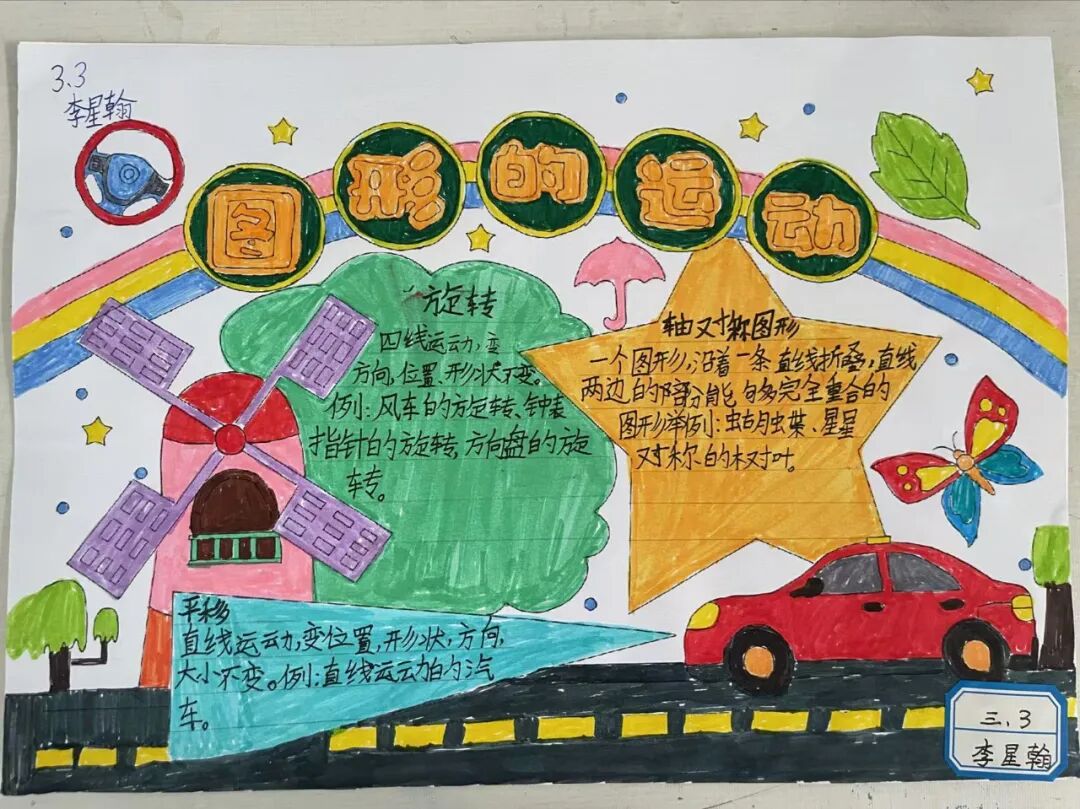 3.3
李星翰
图形的运动
旋转
四线运动,变
方向,位置、形状不变。
例:风车的旋转、钟表
指针的旋转,方向盘的旋
转。
轴对称图形
一个图形,沿着一条直线折叠,直线
两边的部分能够完全重合的
图形举例:蝴蝶、星星
对称的树叶。
平移
直线运动,变位置,形状,方向,
大小不变。例:直线运动的汽
车。
三.3
李星翰